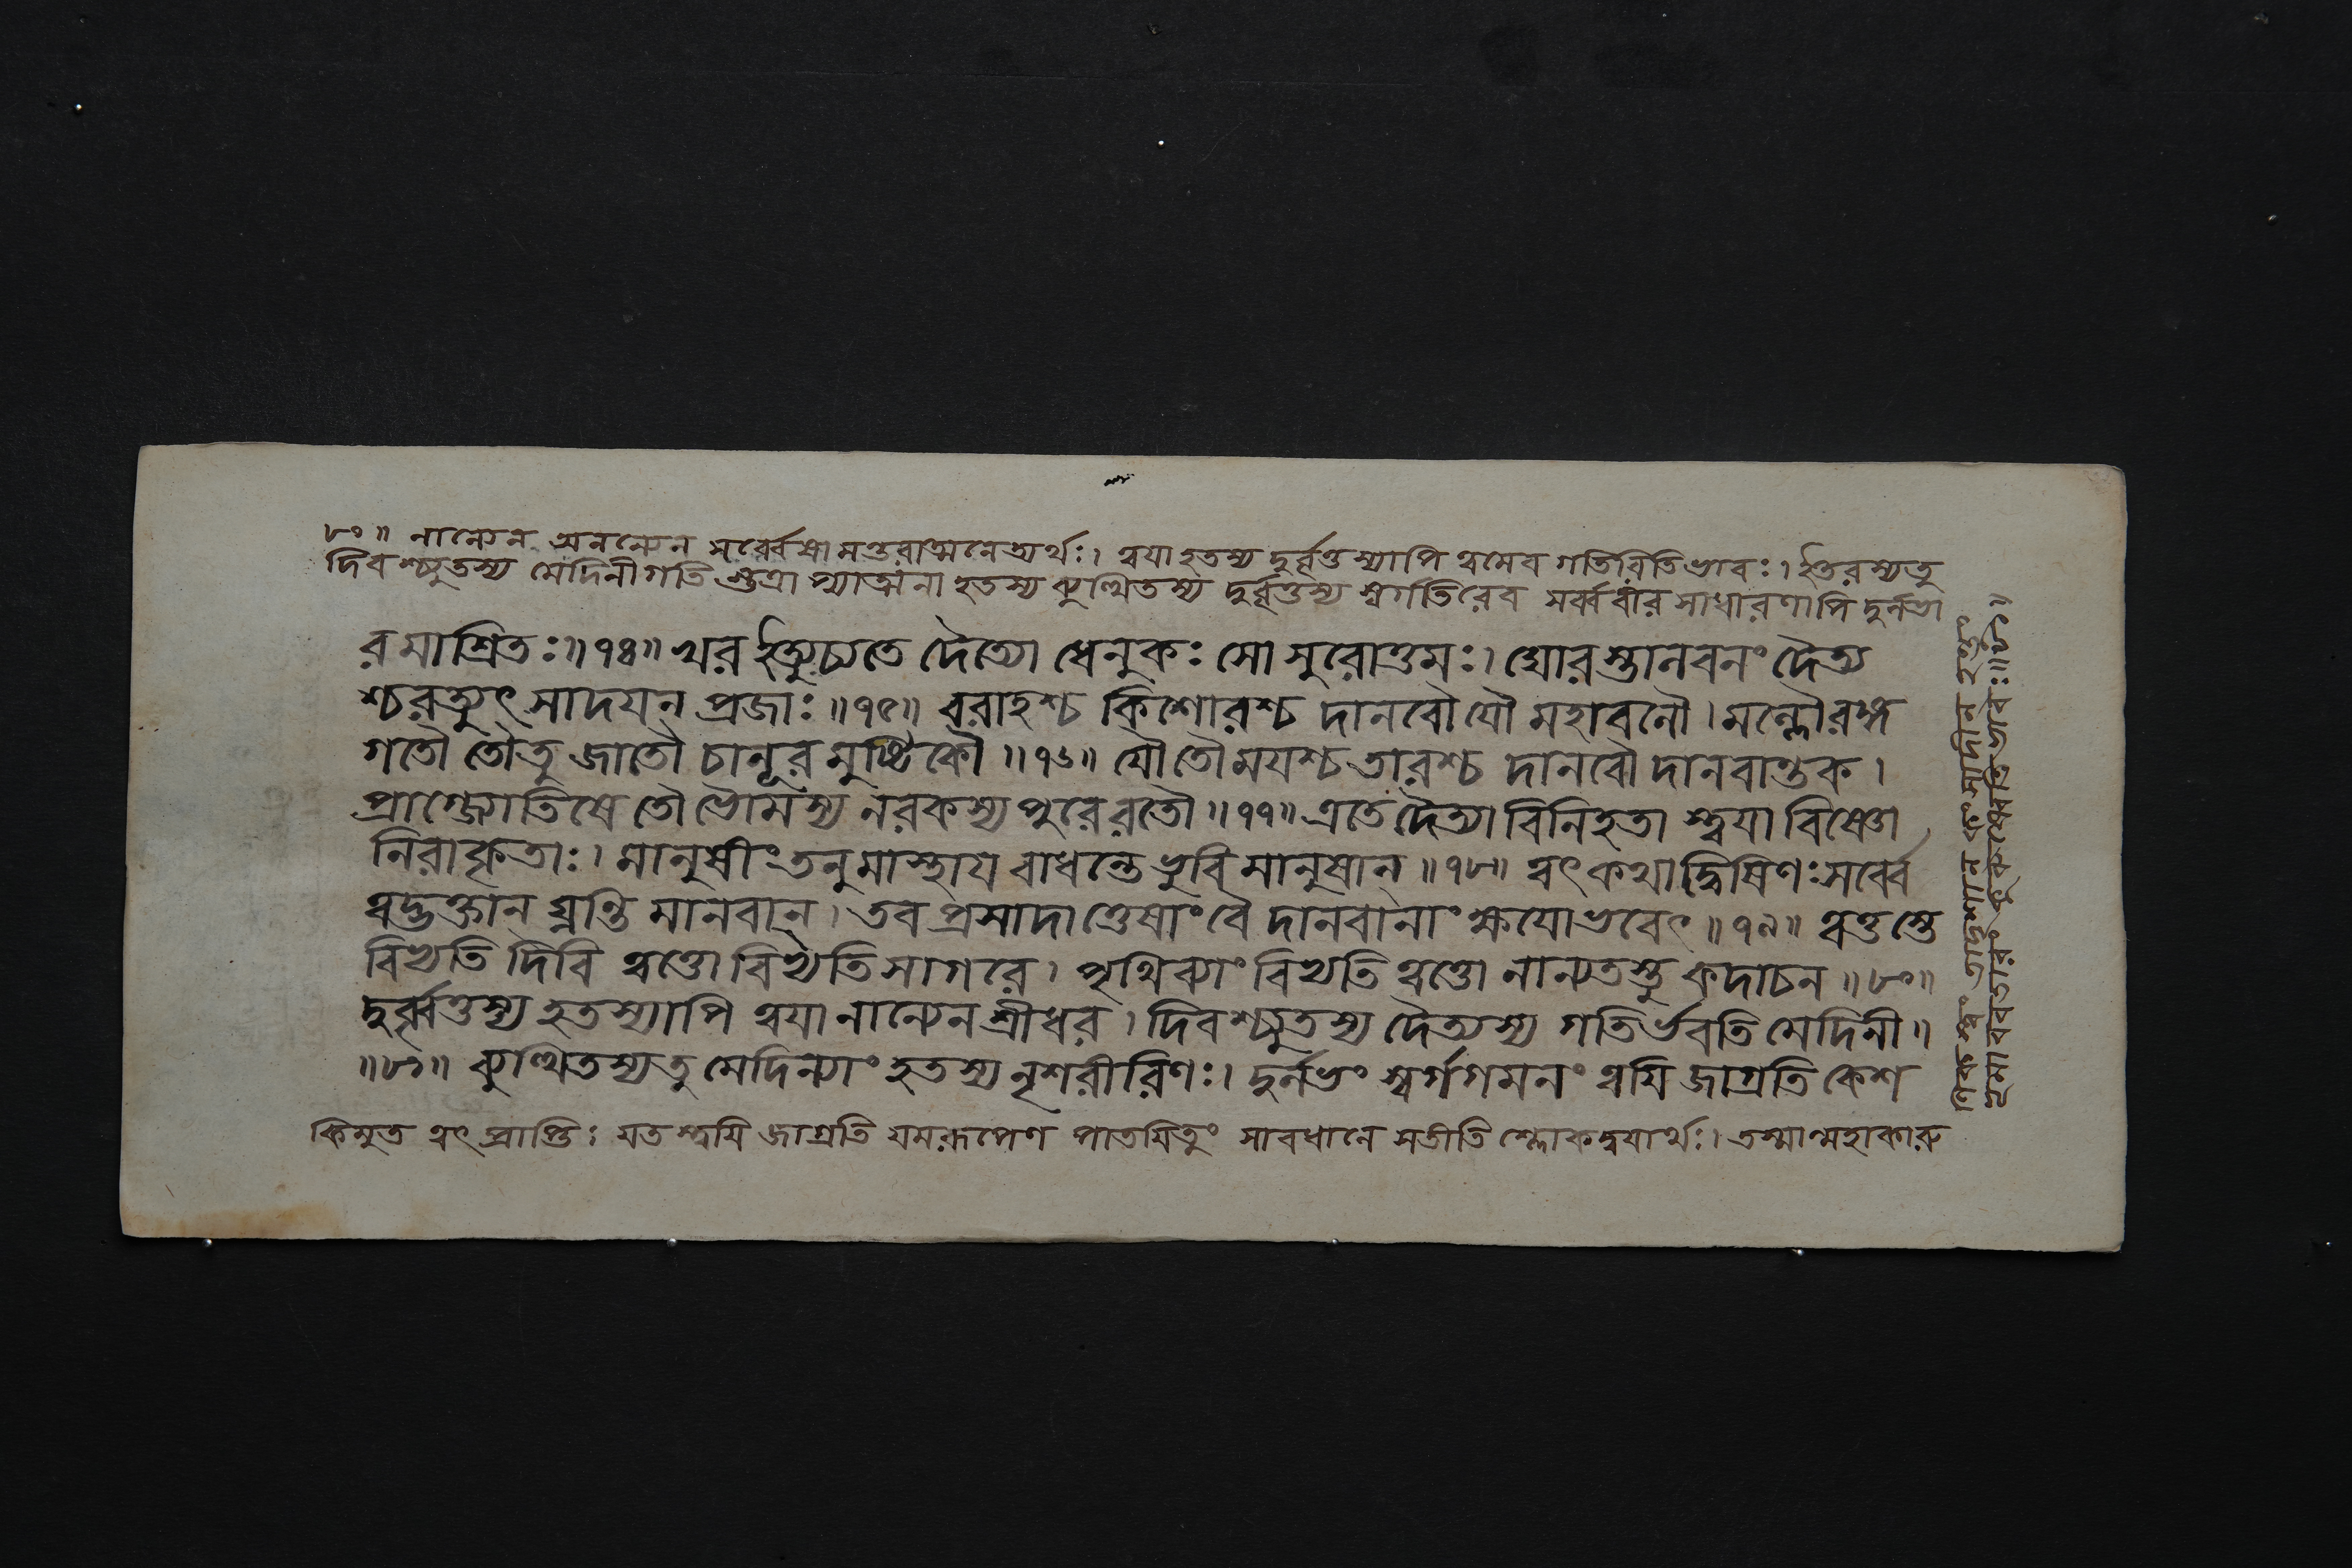 ৮০॥ নান্যেন অনন্যেন সর্ব্বেষামন্তরাত্মনেত্যর্থঃ। ত্বয়া হতস্য দুর্ব্বৃত্তস্যাপি ত্বমেব গতিরিতিভাবঃ। ইতরস্যতু
দিবশ্চ্যুতস্য মেদিনীগতি হতস্য কুত্থিতস্য দুর্ব্বৃত্তস্য স্বর্গতিরেব সাধারণাপি দুর্লভা
রমাশ্রিতঃ॥৭৪॥ খর ইত্যুচ্যতে দৈত্যো ধেনুকঃ সোসুরোত্তমঃ। ঘোরস্তালবনং দৈত্য
শ্চরত্যুৎসাদয়ন্ প্রজাঃ॥৭৫॥ বরাহশ্চ কিশোরশ্চ দানবৌ যৌ মহাবলৌ। মল্লৌ রঙ্গ
গতৌ তৌতু জাতৌ চানূরমুষ্টিকৌ॥৭৬॥ যৌতৌ ময়শ্চ তারশ্চ দানবৌ দানবান্তক।
প্রাগ্জ্যোতিষে তৌ ভৌমস্য নরকস্য পুরেরতৌ॥৭৭॥ এতে দৈত্যা বিনিহতা স্ত্বয়া বিষ্ণো
নিরাকৃতাঃ। মানুষীং তনুমাস্থায় বাধন্তে ভুবি মানুষান্॥৭৮॥ ত্বৎকথাদ্বিষিণঃ সর্ব্বে
ত্বদ্ভক্তান্ ঘ্নন্তি মানবান্। তব প্রসাদাত্তেষাং বৈ দানবানাং ক্ষয়োভবেৎ॥৭৯॥ ত্বত্তস্তে
বিভ্যতি দিবি ত্বত্তো বিভ্যতি সাগরে। পৃথিব্যাং বিভ্যতি ত্বত্তো নান্যতস্তু কদাচন॥৮০॥
দুর্ব্বৃত্তস্য হতস্যাপি ত্বয়া নান্যেন শ্রীধর। দিবশ্চ্যুতস্য দৈত্যস্য গতির্ভবতি মেদিনী॥
॥৮১॥ কুত্থিতস্যতু মেদিন্যাং হতস্য নৃশরীরিণঃ। দুর্লভং স্বর্গগমনং ত্বয়ি জাগ্রতি কেশ
কিমুত ত্বৎ প্রাপ্তিঃ যতস্ত্বয়ি জাগ্রতি যমরূপেণ পাতয়িতুং সাবধানে সতীতি শ্লোকদ্বয়ার্থঃ। তস্মান্মহাকারু
ণিকস্ত্বং কংসাদীন হন্তুং